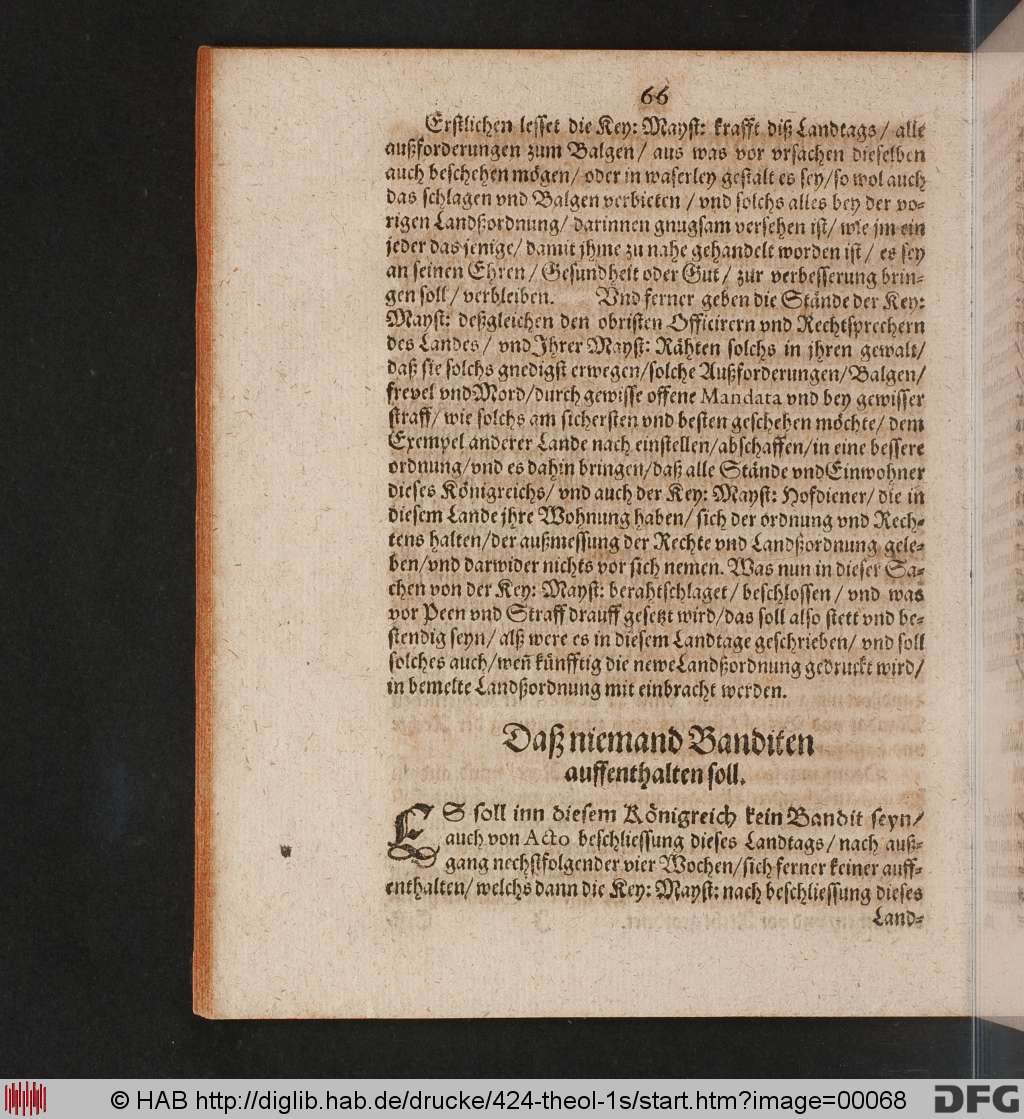 66
Erstlichen lesset die Key: Mayst: krafft diß Landtags/ alle
außforderungen zum Balgen/ aus was vor vrsachen dieselben
auch beschehen mögen/ oder in waserley gestalt es sey/ so wol auch
das schlagen vnd Balgen verbieten / vnd solchs alles bey der vo⸗
rigen Landßordnung/ darinnen gnugsam versehen ist/ wie jm ein
jeder das jenige/ damit jhme zu nahe gehandelt worden ist/ es sey
an seinen Ehren / Gesundheit oder Gut / zur verbesserung brin⸗
gen soll / verbleiben. Vnd ferner geben die Stände der Key:
Mayst: deßgleichen den obristen Officirern vnd Rechtsprechern
des Landes/ vnd Jhrer Mayst: Rähten solchs in jhren gewalt/
daß sie solchs gnedigst erwegen/solche Außforderungen/Balgen/
frevel vnd Mord/durch gewisse offene Mandata vnd bey gewisser
straff/ wie solchs am sichersten vnd besten geschehen möchte/ dem
Exempel anderer Lande nach einstellen/abschaffen/in eine bessere
ordnung/vnd es dahin bringen/daß alle Stände vnd Einwohner
dieses Königreichs/ vnd auch der Key: Mayst: Hofdiener/ die in
diesem Lande jhre Wohnung haben/ sich der ordnung vnd Rech⸗
tens halten/der außmessung der Rechte vnd Landßordnung gele⸗
ben/vnd darwider nichts vor sich nemen. Was nun in dieser Sa⸗
chen von der Key: Mayst: berahtschlaget/ beschlossen / vnd was
vor Peen vnd Straff drauff gesetzt wird/das soll also stett vnd be⸗
stendig seyn/ alß were es in diesem Landtage geschrieben/ vnd soll
solches auch/weñ künfftig die newe Landßordnung gedruckt wird/
in bemelte Landßordnung mit einbracht werden.
Daß niemand Banditen
auffenthalten soll.
ES soll inn diesem Königreich kein Bandit seyn/
auch von Acto beschliessung dieses Landtags/ nach auß⸗
gang nechstfolgender vier Wochen/sich ferner keiner auff⸗
enthalten/ welchs dann die Key: Mayst: nach beschliessung dieses
Land⸗
© HAB http://diglib.hab.de/drucke/424-theol-1s/start.htm?image=00068
DFG